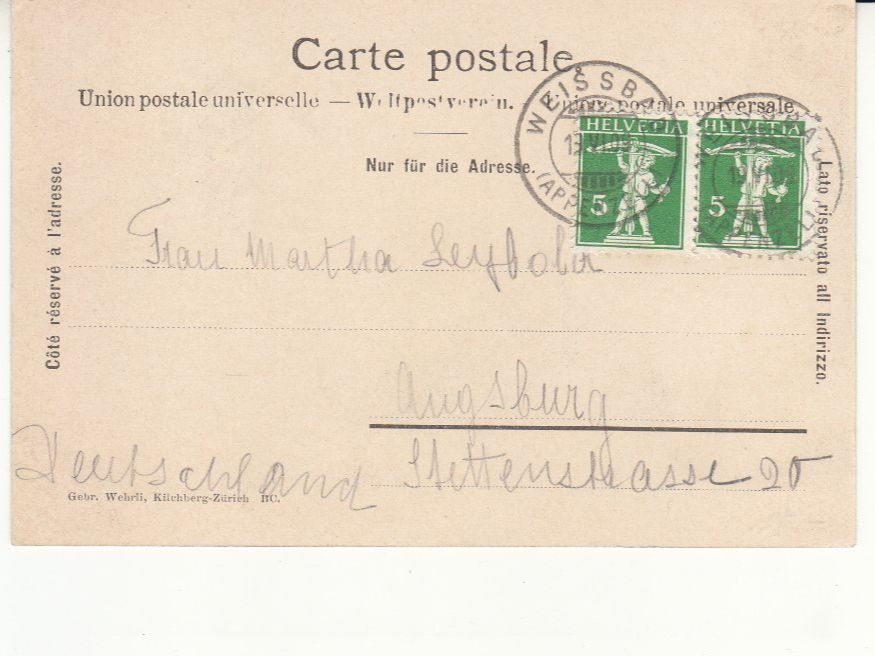 Carte postale
Union postale universelle — Weltpostverein. Unione postale universale
Nur für die Adresse.
Côté réservé à l'adresse.
Lato riservato all Indirizzo.
WEISSB
13 VI 09
(APPE
HELVETIA
5
HELVETIA
5
Frau Martha
Augsburg
Deutschland Stettenstrasse 20
Gebr. Wehrli, Kilchberg-Zürich BC.